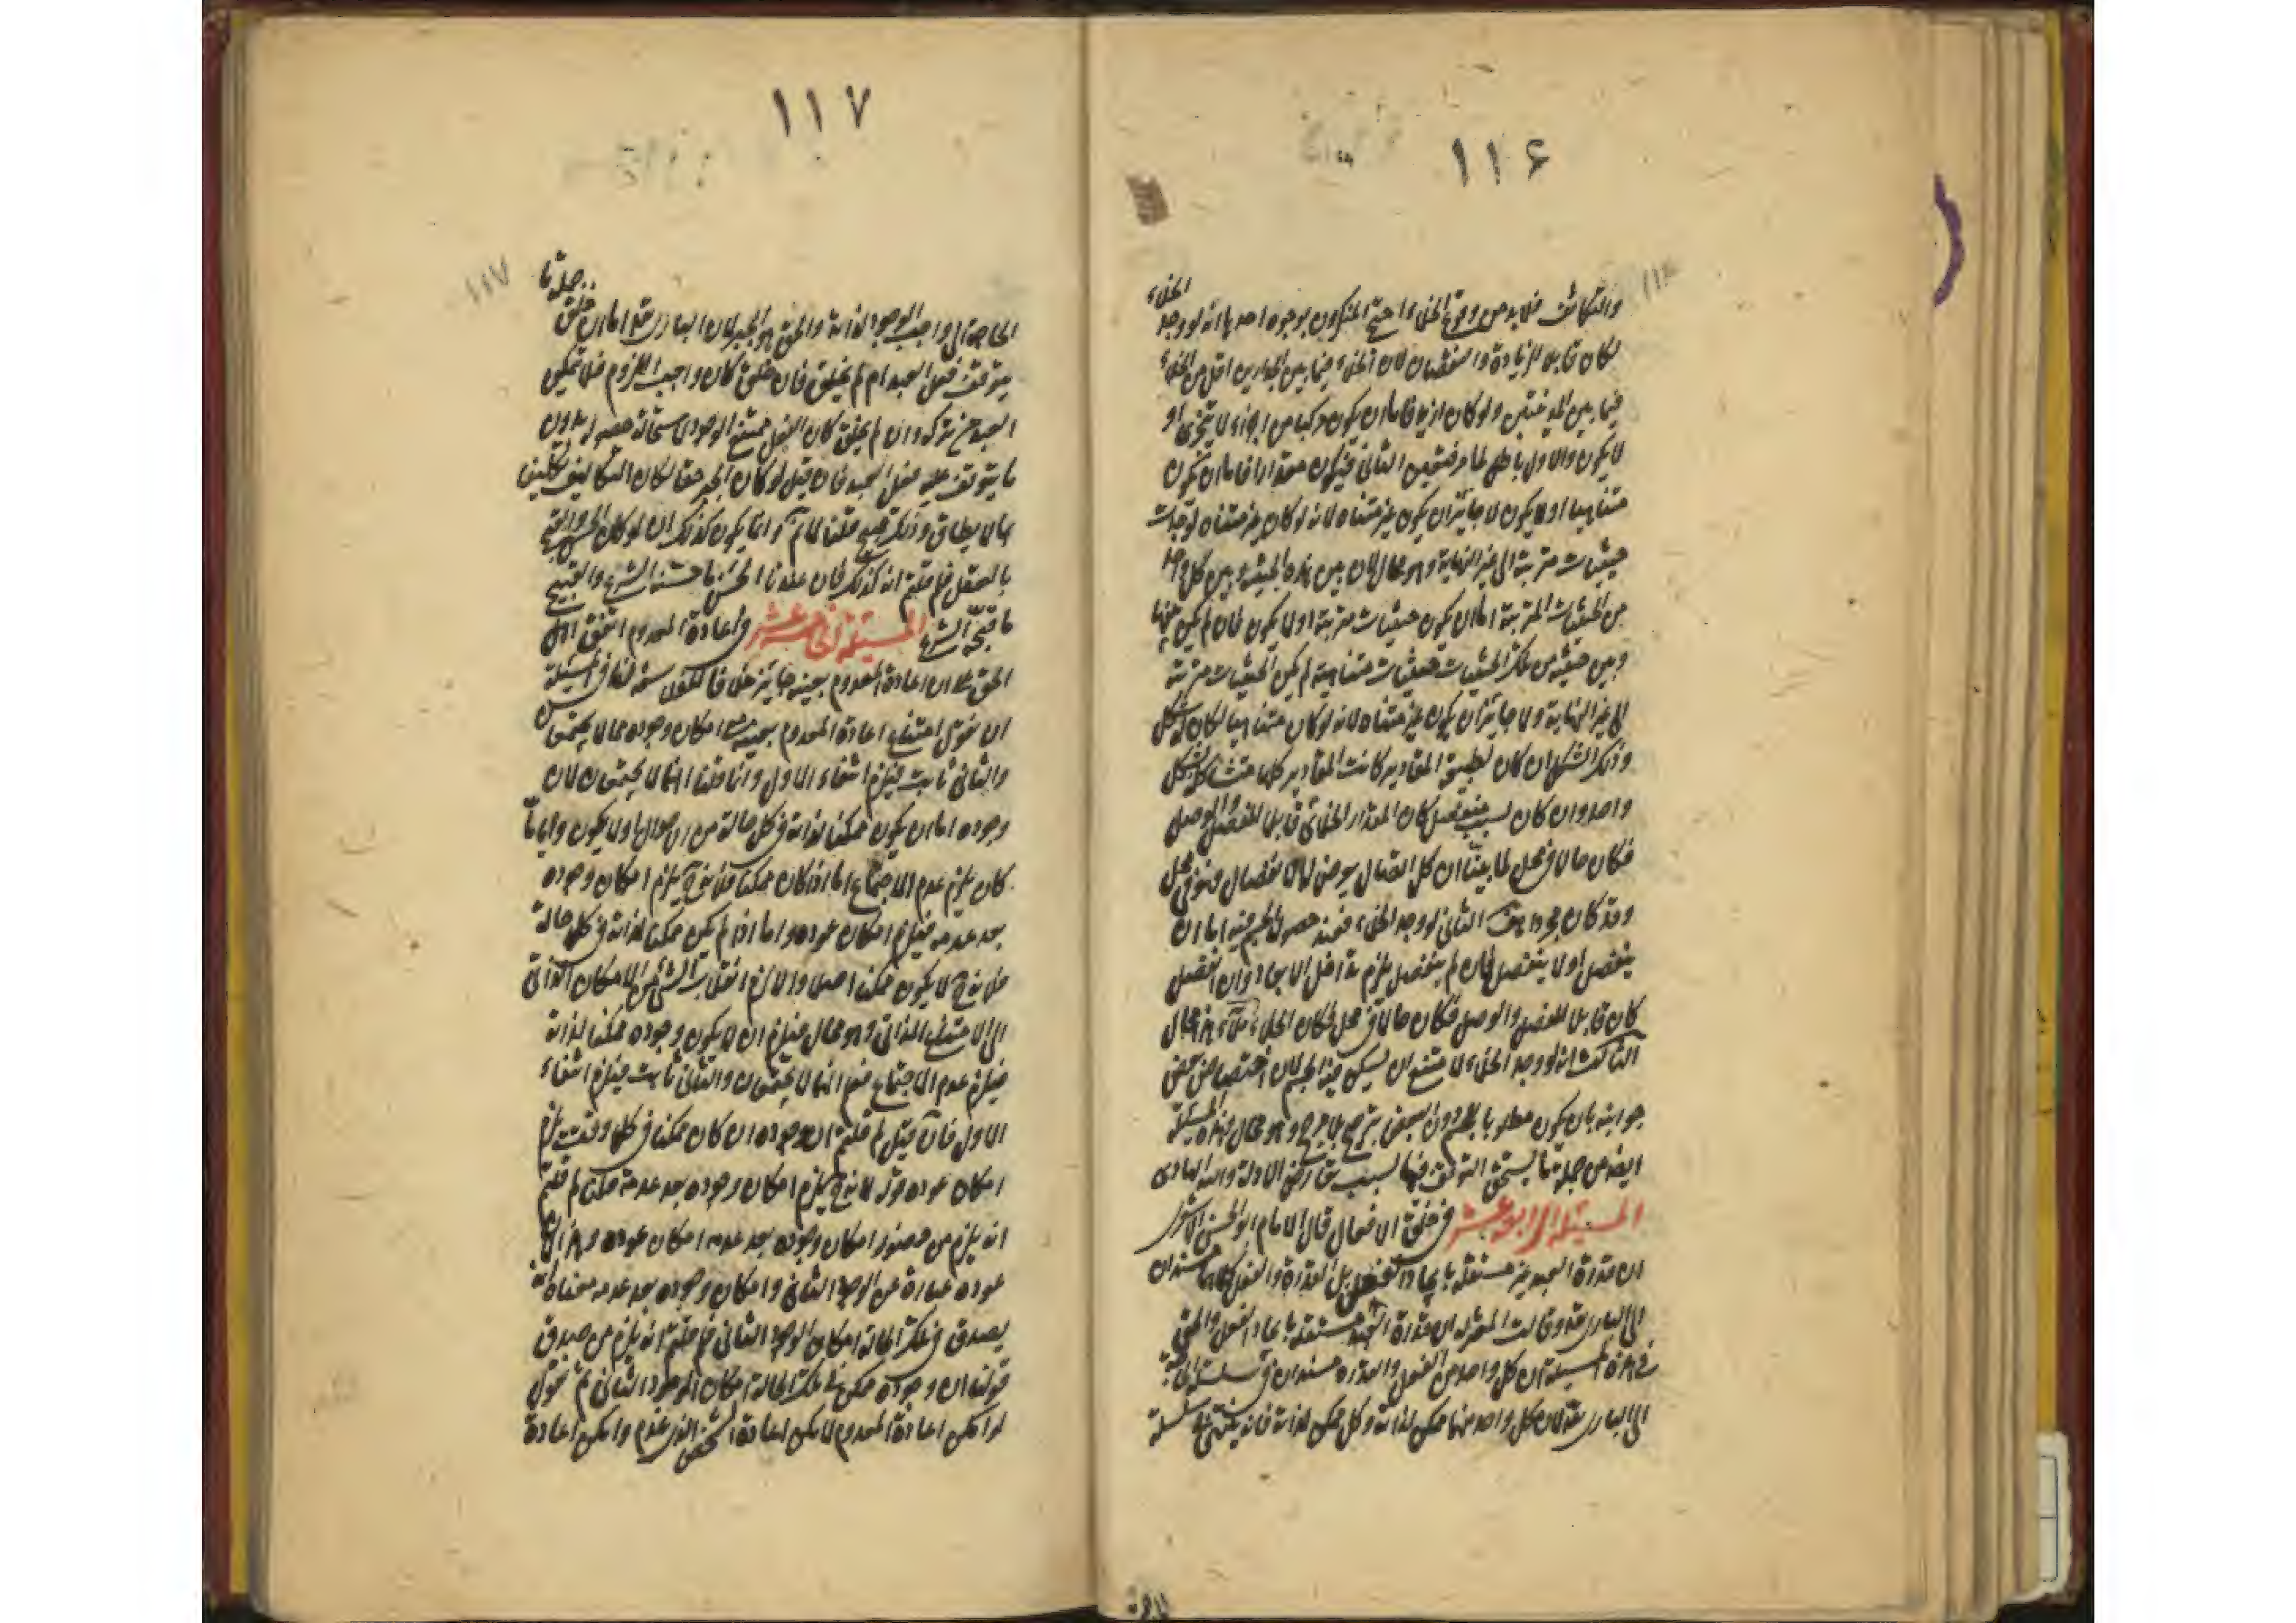 ١١۶
الخلاء
والتكاثف فلا بد من وقوع الخلاء واحتج المنكرون بوجوه احدها انه لو وجد
لكان قابلا للزيادة والنقصان لان الخلاء فيما بين الجدارين اقل من الخلاء
فيما بين المدينتين ولو كان كذلك فاما ان يكون مركبا من اجزاء لا تتجزى او
لا يكون والاول باطل لما مر فتعين الثاني فيكون مقدارا فاما ان يكون
متناهيا او لا يكون لا جائز ان يكون غير متناه لانه لو كان غير متناه لوجدت
حيثيات مترتبة الى غير النهاية وهو محال لان بين هذه الحيثية وبين كل واحد
من الحيثيات المترتبة اما ان يكون حيثيات مترتبة او لا يكون فان لم يكن بينها
وبين حيثية من تلك الحيثيات حيثيات متناهية لم يكن الحيثيات مترتبة
الى غير النهاية ولا جائز ان يكون غير متناه لانه لو كان متناهيا لكان له شكل
وذلك الشكل ان كان لطبيعة المقادير كانت المقادير كلها متشاكلة بشكل
واحد وان كان لسبب منفصل كان المقدار الخلائي قابلا للفصل والوصل
فكان حالا في محل لما بينا ان كل اتصال يعرض له الانفصال فهو في محل
وقد كان مجردا هف الثاني لو وجد الخلاء فعند حصول الجسم فيه اما ان
ينفصل او لا ينفصل فان لم ينفصل يلزم تداخل الابعاد وان انفصل
كان قابلا للفصل والوصل فكان حالا في محل فكان الخلاء ملاء هذا محال
الثالث انه لو وجد الخلاء لامتنع ان يسكن فيه الجسم لان اختصاص بعض
جوانبه بان يكون مطلوبا بالجسم دون البعض ترجيح بلا مرجح وهو محال وهذه المسئلة
ايضا من جملة ما يستحق التوقف فيها لسبب تعارض الادلة والله الهادى
المسئلة الرابعة عشر في خلق الافعال قال الامام ابو الحسن الاشعرى
ان قدرة العبد غير مستقلة بايجاد الفعل بل القدرة والفعل كلاهما مستندان
الى البارى تعالى وقالت المعتزلة ان قدرة العبد مستقلة بايجاد الفعل والحق
في هذه المسئلة ان كل واحد من الفعل والقدرة مستندان في سلسلة الحاجة
الى البارى تعالى لان كل واحد منهما ممكن لذاته وكل ممكن لذاته فانه ينتهى في سلسلة
١١٧
الحاجة الى واجب الوجود لذاته والحق هو الجبر لان البارى تعالى اما ان خلق جملة ما
يتوقف فعل العبد ام لم يخلق فان خلق كان واجب اللزوم فلا تمكين
العبد من تركه وان لم يخلق كان الفعل ممتنع الوجود لاستحالة حصوله بدون
ما يتوقف عليه فعل العبد فان قيل لو كان الجبر حقا لكان التكاليف تكليفا
بما لا يطاق وذلك قبيح قلنا لم وانما يكون كذلك ان لو كان الحسن والقبح
بالعقل فلم قلتم انه كذلك فان عندنا الحسن ما حسنه الشرع والقبيح
ما قبحه الشرع المسئلة الخامسة عشر في اعادة المعدوم اتفق اهل
الحق على ان اعادة المعدوم بعينه جائز خلافا للفلاسفة لنا في المسئلة
ان نقول امتناع اعادة المعدوم بعينه مع امكان وجوده مما لا يجتمعان
والثاني ثابت فيلزم انتفاء الاول وانما قلنا انهما لا يجتمعان لان
وجوده اما ان يكون ممكنا لذاته في كل حالة من الاحوال او لا يكون وايا ما
كان يلزم عدم الاجتماع اما اذا كان ممكنا فلانه يلزم امكان وجوده
بعد عدمه فيلزم امكان عوده واما اذا لم يكن ممكنا لذاته في كل حالة
فلانه لا يكون ممكنا اصلا والا لزم انقلاب الشئ من الامكان الذاتي
الى الامتناع الذاتي وهو محال فيلزم ان لا يكون وجوده ممكنا لذاته
فيلزم عدم الاجتماع فعلم انهما لا يجتمعان والثاني ثابت فيلزم انتفاء
الاول فان قيل لم قلتم ان وجوده ان كان ممكنا في كل وقت يلزم
امكان عوده قوله لانه يلزم امكان وجوده بعد عدمه قلنا لم قلتم
انه يلزم من امكان وجوده بعد عدمه امكان عوده وهذا لان
عوده عبارة عن الوجود الثاني وامكان وجوده بعد عدمه معناه انه
يصدق في تلك الحالة امكان الوجود الثاني فلم قلتم انه يلزم من صدق
قولنا ان وجوده ممكن في تلك الحالة امكان الوجود الثاني ثم نقول
لو امكن اعادة المعدوم لامكن اعادة الشخص الذى عدم وامكن اعادة